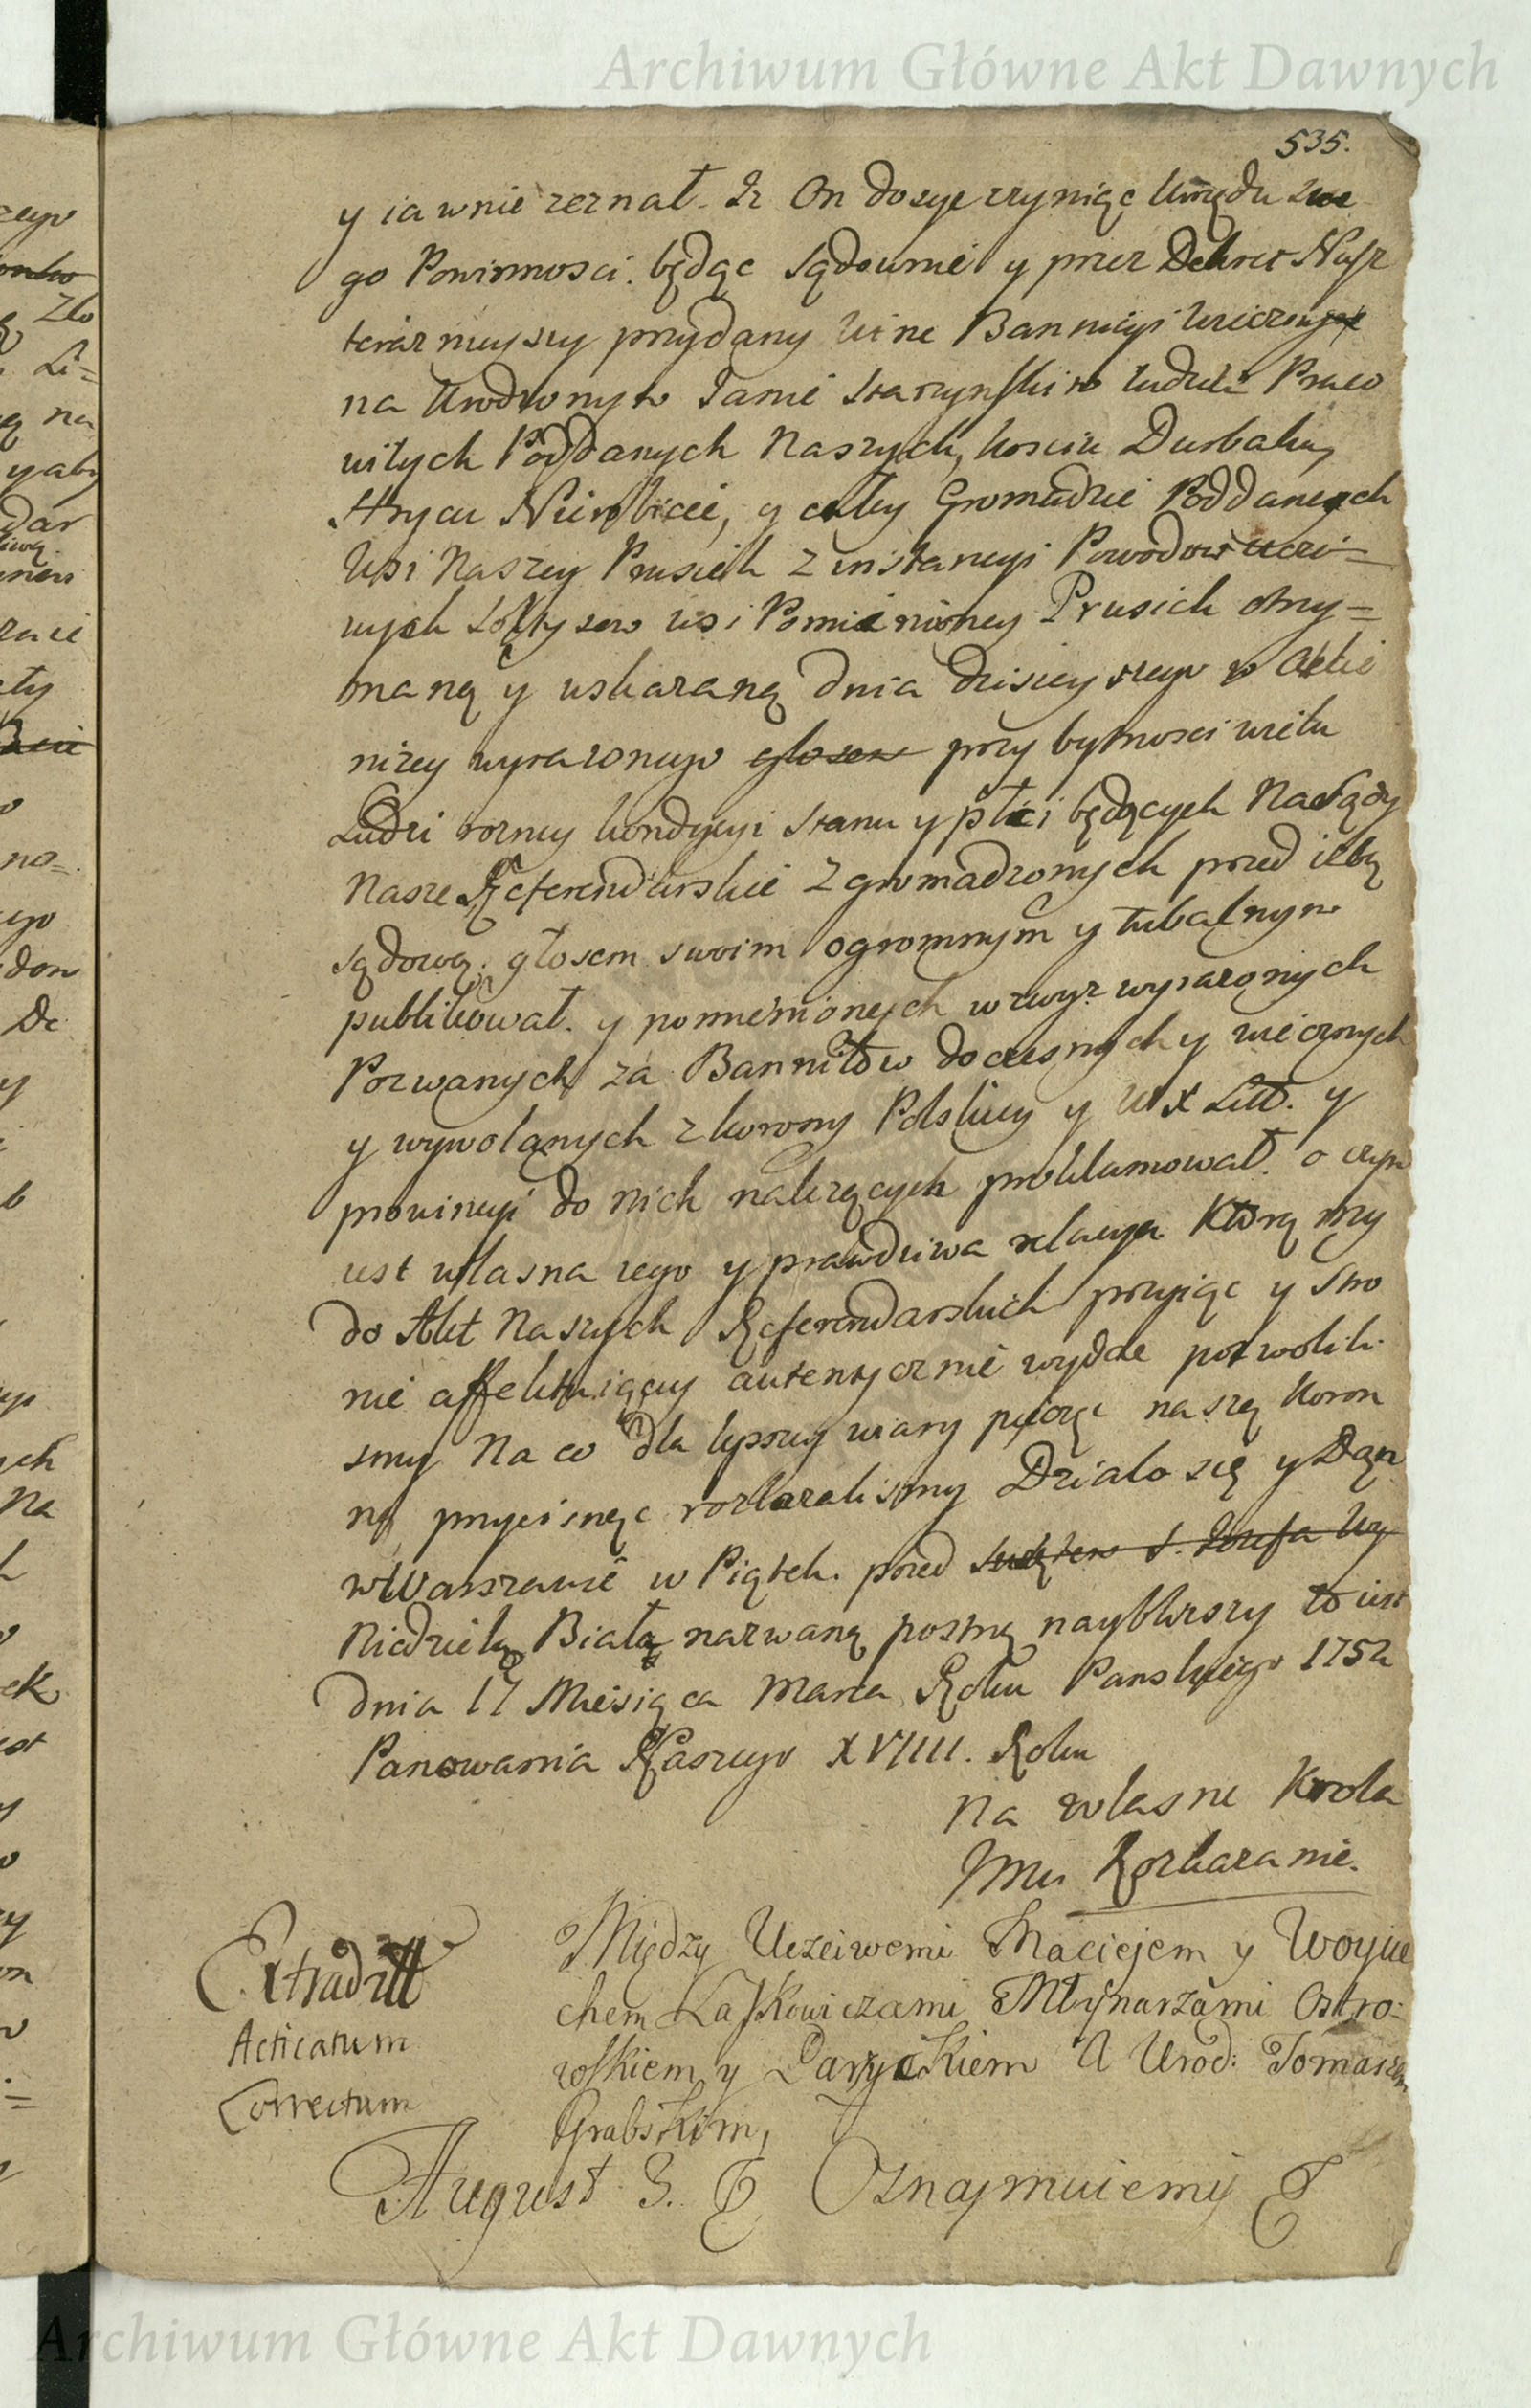 Archiwum Główne Akt Dawnych
535.
y iawnie zeznał. Iz On dosyc czyniąc Urzędu swe
go Powinnosci. będąc sądownie y przez Dekret Nasz
teraznieyszy przydany winę Bannicyi wieczney
na Urodzonym Janie Starzynskim tudziez Praco
witych Poddanych Naszych, Kosciu Durbaku,
Hrycu Nierobicei, y całey Gromadzie Poddanych
Wsi Naszey Prusich z instancyi Powodow ucci=
wych Sołtysow wsi Pomienioney Prusich otrzy=
maną y wskazaną dnia dzisieyszego w akcie
nizey wyrazonego głosem przy bytnosci wielu
Ludzi rozney kondycyi stanu y płci będących Na Sądy
Nasze Referendarskie zgromadzonych przed izbą
sądową. głosem swoim ogromnym y tubalnym
publikował. y pomienionych wzwyz wyrazonych
Pozwanych za Bannitow doczesnych y wiecznych
y wywołanych z korony Polskiey y W X Litt. y
prowincyi do nich nalezących proklamował. o czym
iest własna iego y prawdziwa relacya Którą my
do Akt Naszych Referendarskich przyiąc y Stro
nie affektuiącey autentycznie wydac pozwolili
smy Na co dla lepszey wiary pięczęc naszą Koron
ną przycisnąc rozkazalismy Działo się y Dan
w Warszawie w Piątek. przed Swiętem S. Jozefa Uy
Niedzielą Białą nazwaną postną naybliszy to iest
dnia 17 Miesiąca Marca Roku Panskiego 1752
Panowania Naszego XVIIII. Roku
Na własne Krola
Jmci Rozkazanie.
Extraditt
Acticatum
Correctum
Między Uczciwemi Maciejem y Woycie
chem Laskowiczami Młynarzami Ostro=
wskiem y Paryckiem A Urod: Tomaszem
Grabskim,
August 3. & Oznajmuiemy &
Archiwum Główne Akt Dawnych